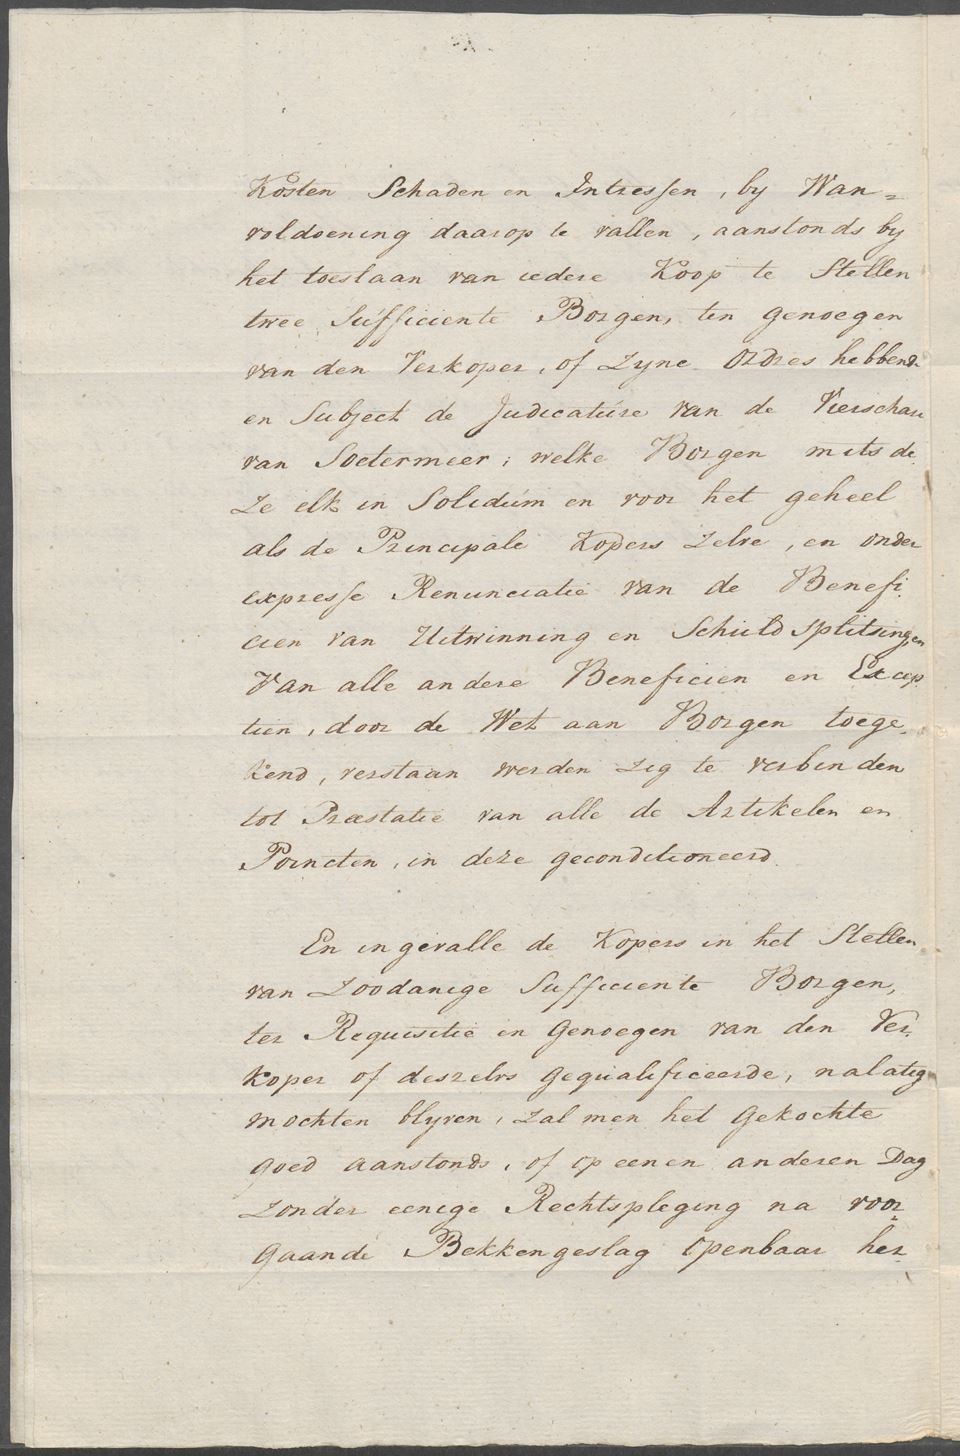 Kosten Schaden en Intressen, by Wan=
voldoening daarop te vallen, aanstonds by
het toeslaan van iedere Koop te Stellen
twee Sufficiente Borgen, ten genoegen
van den Verkoper, of Zyne Ordres hebbende
en Subject de Judicature van de Vierschare
van Soetermeer; welke Borgen mits de
Ze elk in Solidum en voor het geheel
als de Principale Kopers Zelve, en onder
expresse Renunciatie van de Benefi
cien van Uitwinning en Schuld Splitsing, en
Van alle andere Beneficien en Excep
tien, door de Wet aan Borgen toege
kend, verstaan werden Zig te verbinden
tot Præstatie van alle de Artikelen en
Poincten, in deze geconditioneerd.
En ingevalle de Kopers in het Stellen
van Zoodanige Sufficiente Borgen,
ter Requisitie en Genoegen van den Ver
koper of deszelvs gequalificeerde, nalatig
mochten blyven, Zal men het Gekochte
goed aanstonds, of op eenen anderen Dag
Zonder eenige Rechtspleging na voor
gaande Bekkengeslag openbaar her